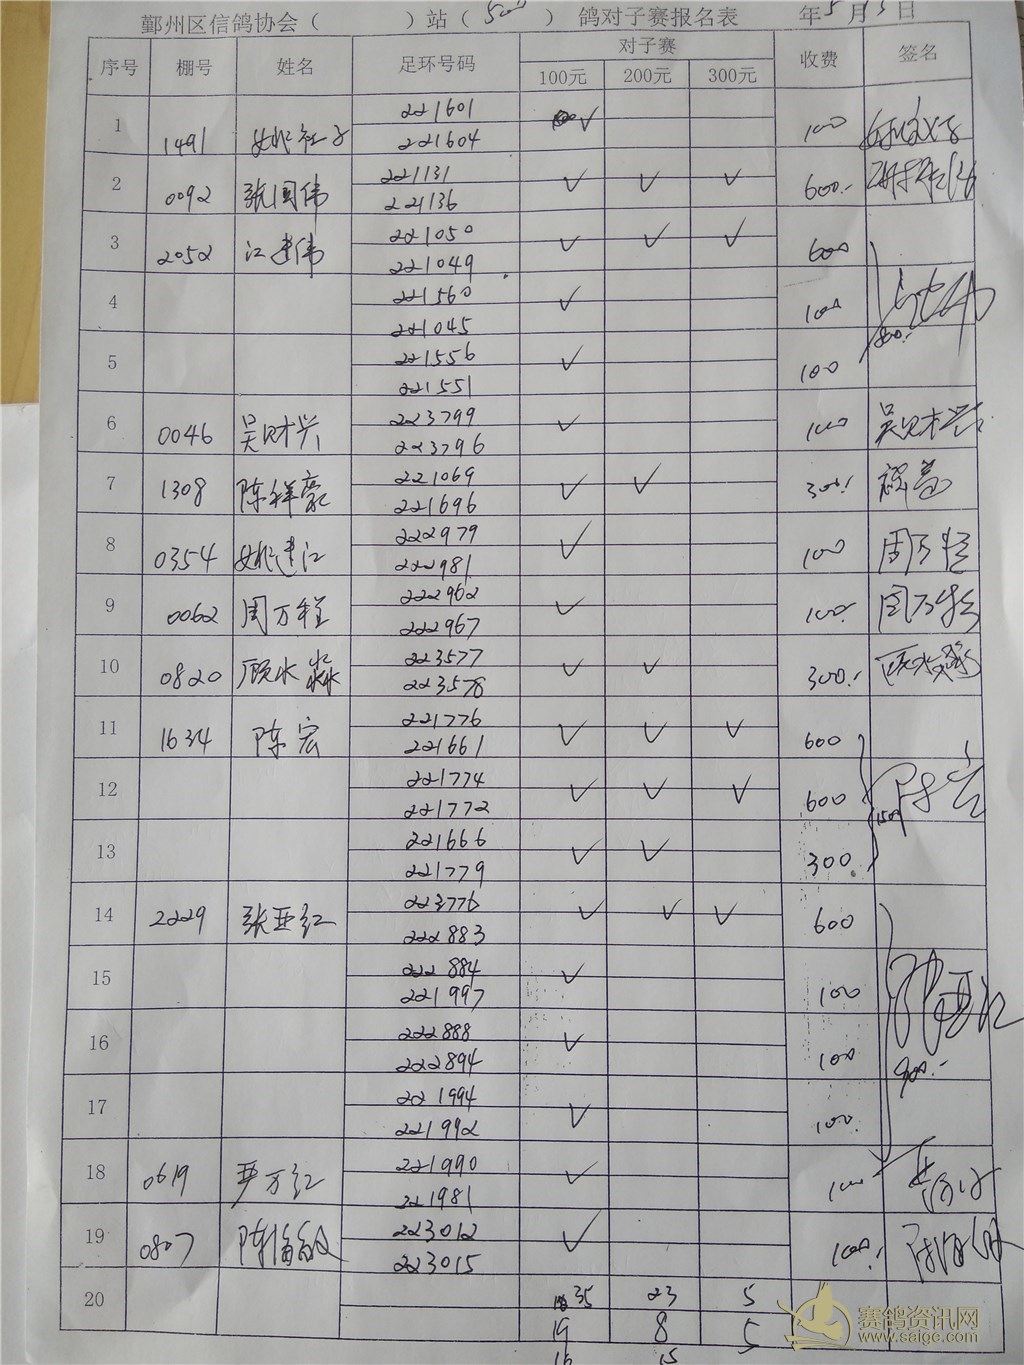 鄞州区信鸽协会（ ）站（ 500 ） 鸽对子赛报名表 年5月3日
序号 棚号 姓名 足环号码 对子赛 收费 签名
100元 200元 300元
1 1491 221601 ✓ 100
221604
2 0092 张国伟 221131 ✓ ✓ ✓ 600.-
221136
3 2052 江建伟 221050 ✓ ✓ ✓ 600
221049
4 221560 ✓ 100
221045
800.-
5 221556 ✓ 100
221551
6 0046 吴财兴 223799 ✓ 100 吴财兴
223796
7 1308 陈祥豪 221069 ✓ ✓ 300
221696
8 0354 姚建江 222979 ✓ 100 周万程
222981
9 0062 周万程 222962 ✓ 100. 周万程
222967
10 0820 顾水淼 223577 ✓ ✓ 300.-
223578
11 1634 陈宏 221776 ✓ ✓ ✓ 600
221661
12 221774 ✓ ✓ ✓ 600 陈宏
221772 1500
13 221666 ✓ ✓ 300
221779
14 2229 张亚红 223776 ✓ ✓ ✓ 600
222883
15 222884 ✓ 100 张亚红
221997
16 222888 ✓ 100 900.-
222894
17 221994 ✓ 100.
221992
18 0619 严万红 221990 ✓ 100
221981
19 0807 223012 ✓ 100.
223015
20 35 23 5
19 8 5
16 15
赛鸽资讯网
www.saige.com